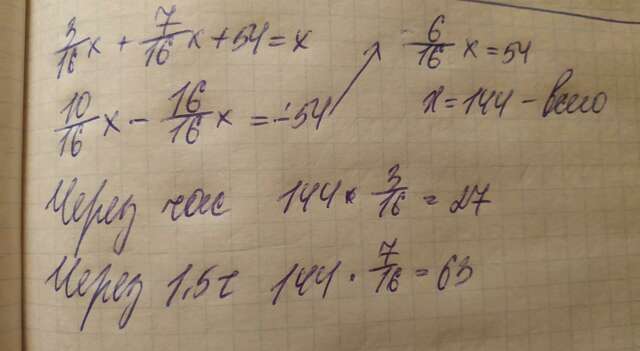 3/16 x + 7/16 x + 54 = x
6/16 x = 54
10/16 x - 16/16 x = -54
x = 144 - всего
Через час 144 * 3/16 = 27
Через 1,5 ч 144 · 7/16 = 63